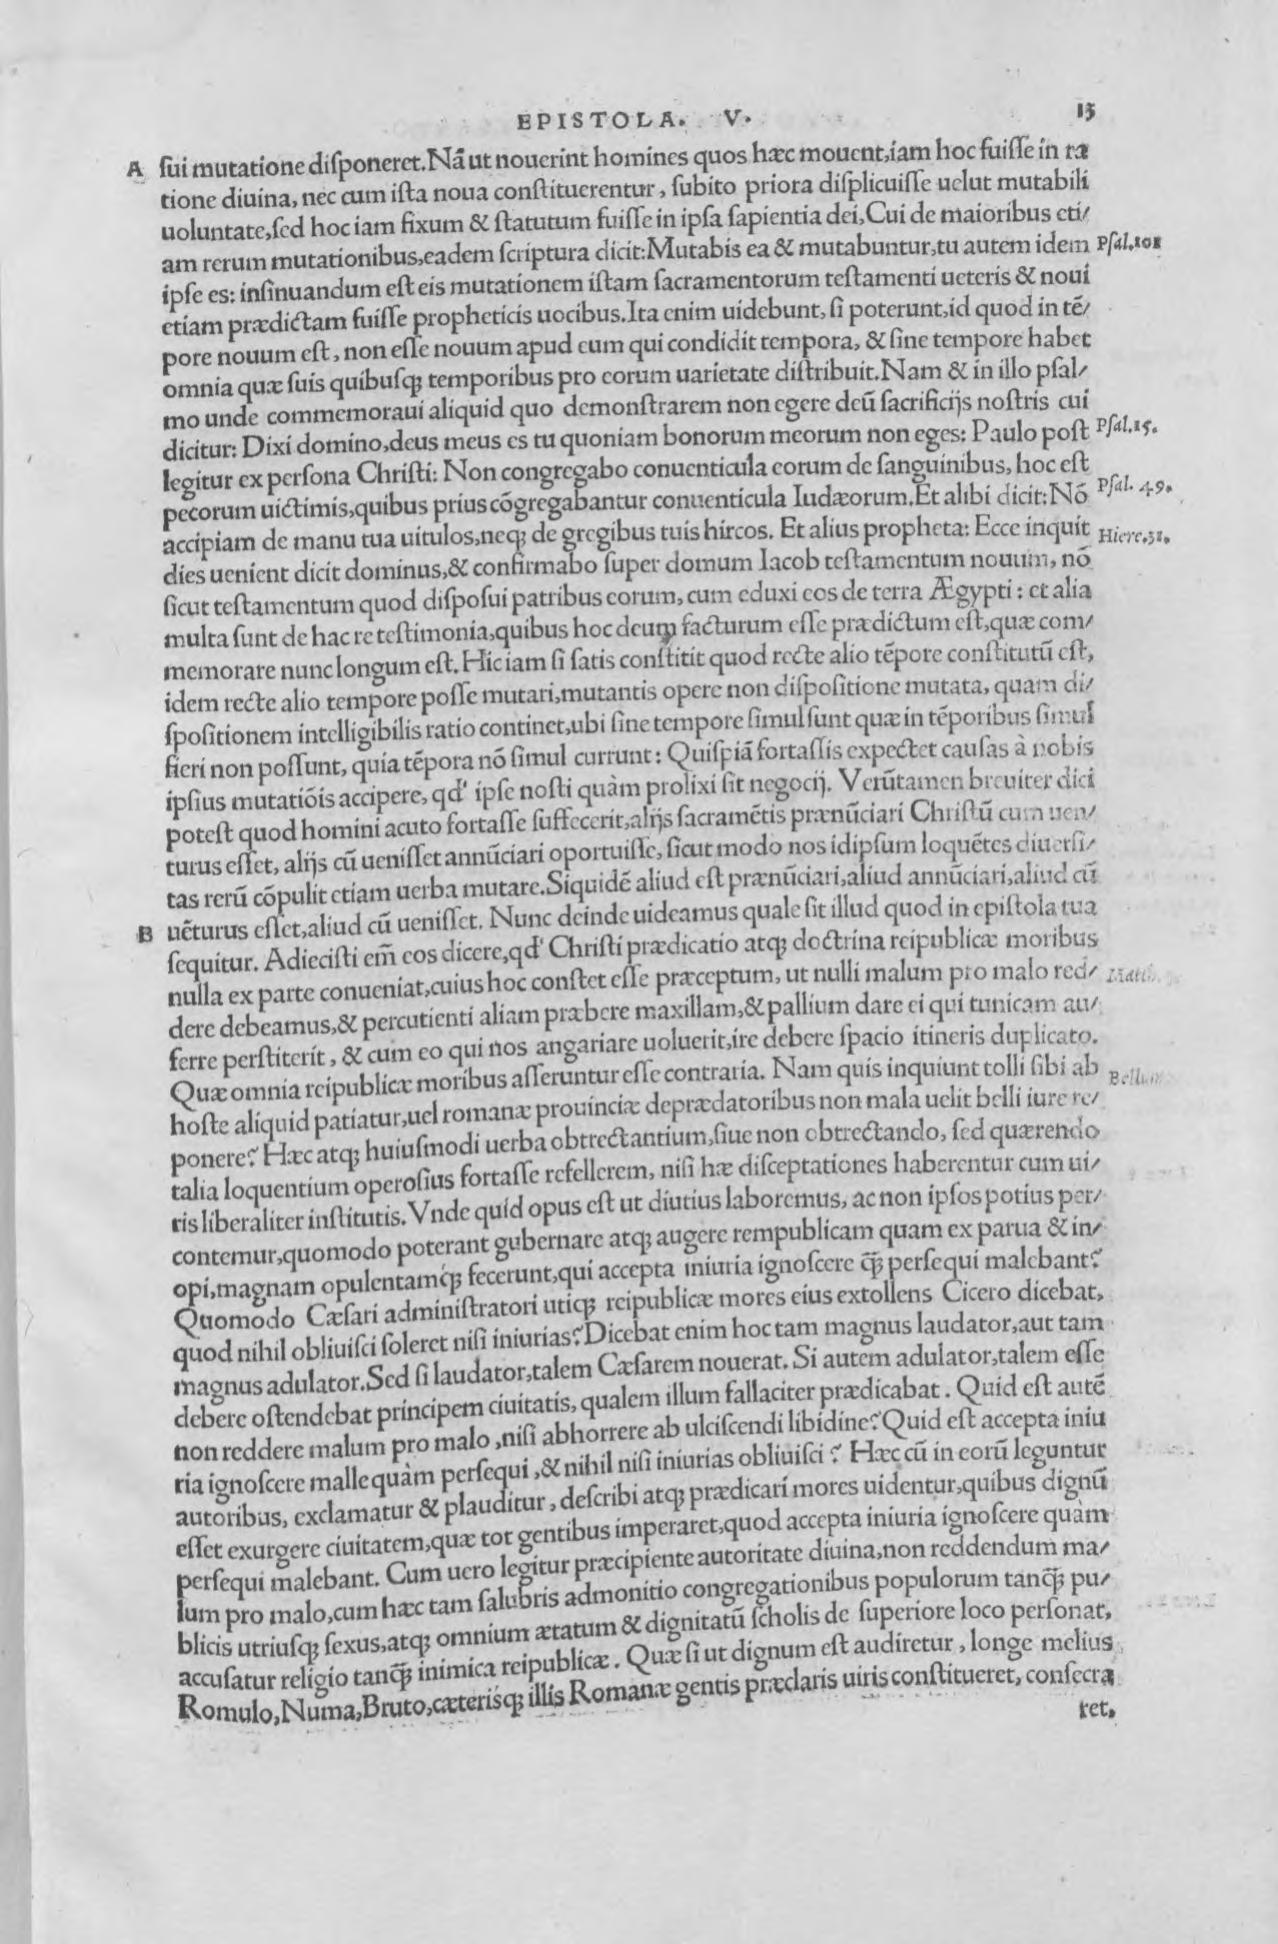 EPISTOLA. V. 15
A ſui mutatione diſponeret. Nā ut nouerint homines quos hæc mouent, iam hoc fuiſſe in ra
tione diuina, nec cum iſta noua conſtituerentur, ſubito priora diſplicuiſſe uelut mutabili
uoluntate, ſed hoc iam fixum & ſtatutum fuiſſe in ipſa ſapientia dei, Cui de maioribus eti/
am rerum mutationibus, eadem ſcriptura dicit: Mutabis ea & mutabuntur, tu autem idem Pſal. 101
ipſe es: inſinuandum eſt eis mutationem iſtam ſacramentorum teſtamenti ueteris & noui
etiam prædictam fuiſſe propheticis uocibus. Ita enim uidebunt, ſi poterunt, id quod in tē/
pore nouum eſt, non eſſe nouum apud eum qui condidit tempora, & ſine tempore habet
omnia quæ ſuis quibuſq; temporibus pro eorum uarietate diſtribuit. Nam & in illo pſal/
mo unde commemoraui aliquid quo demonſtrarem non egere deū ſacrificijs noſtris cui
dicitur: Dixi domino, deus meus es tu quoniam bonorum meorum non eges: Paulo poſt Pſal. 15.
legitur ex perſona Chriſti: Non congregabo conuenticula eorum de ſanguinibus, hoc eſt
pecorum uictimis, quibus prius cōgregabantur conuenticula Iudæorum. Et alibi dicit: Nō Pſal. 49.
accipiam de manu tua uitulos, neq; de gregibus tuis hircos. Et alius propheta: Ecce inquit Hiere. 31.
dies uenient dicit dominus, & confirmabo ſuper domum Iacob teſtamentum nouum, nō
ſicut teſtamentum quod diſpoſui patribus eorum, cum eduxi eos de terra Ægypti: et alia
multa ſunt de hac re teſtimonia, quibus hoc deum facturum eſſe prædictum eſt, quæ com/
memorare nunc longum eſt. Hic iam ſi ſatis conſtitit quod recte alio tēpore conſtitutū eſt,
idem recte alio tempore poſſe mutari, mutantis opere non diſpoſitione mutata, quam di/
ſpoſitionem intelligibilis ratio continet, ubi ſine tempore ſimul ſunt quæ in tēporibus ſimul
fieri non poſſunt, quia tēpora nō ſimul currunt: Quiſpiā fortaſſis expectet cauſas à nobis
ipſius mutatiōis accipere, qd' ipſe noſti quàm prolixi ſit negocij. Verūtamen breuiter dici
poteſt quod homini acuto fortaſſe ſuffecerit, alijs ſacramētis prænūciari Chriſtū cum uen/
turus eſſet, alijs cū ueniſſet annūciari oportuiſſe, ſicut modo nos idipſum loquētes diuerſi/
tas rerū cōpulit etiam uerba mutare. Siquidē aliud eſt prænūciari, aliud annūciari, aliud cū
B uēturus eſſet, aliud cū ueniſſet. Nunc deinde uideamus quale ſit illud quod in epiſtola tua
ſequitur. Adieciſti em̄ eos dicere, qd' Chriſti prædicatio atq; doctrina reipublicæ moribus
nulla ex parte conueniat, cuius hoc conſtet eſſe præceptum, ut nulli malum pro malo red/ Matt.
dere debeamus, & percutienti aliam præbere maxillam, & pallium dare ei qui tunicam au/
ferre perſtiterit, & cum eo qui nos angariare uoluerit, ire debere ſpacio itineris duplicato.
Quæ omnia reipublicæ moribus aſſeruntur eſſe contraria. Nam quis inquiunt tolli ſibi ab
hoſte aliquid patiatur, uel romanæ prouinciæ deprædatoribus non mala uelit belli iure re/
ponere? Hæc atq; huiuſmodi uerba obtrectantium, ſiue non obtrectando, ſed quærendo
talia loquentium operoſius fortaſſe refellerem, niſi hæ diſceptationes haberentur cum ui/
ris liberaliter inſtitutis. Vnde quid opus eſt ut diutius laboremus, ac non ipſos potius per/
contemur, quomodo poterant gubernare atq; augere rempublicam quam ex parua & in/
opi, magnam opulentamq́; fecerunt, qui accepta iniuria ignoſcere q̄; perſequi malebant?
Quomodo Cæſari adminiſtratori utiq; reipublicæ mores eius extollens Cicero dicebat,
quod nihil obliuiſci ſoleret niſi iniurias? Dicebat enim hoc tam magnus laudator, aut tam
magnus adulator. Sed ſi laudator, talem Cæſarem nouerat. Si autem adulator, talem eſſe
debere oſtendebat principem ciuitatis, qualem illum fallaciter prædicabat. Quid eſt autē
non reddere malum pro malo, niſi abhorrere ab ulciſcendi libidine? Quid eſt accepta iniu
ria ignoſcere malle quàm perſequi, & nihil niſi iniurias obliuiſci? Hæc cū in eorū leguntur
autoribus, exclamatur & plauditur, deſcribi atq; prædicari mores uidentur, quibus dignū
eſſet exurgere ciuitatem, quæ tot gentibus imperaret, quod accepta iniuria ignoſcere quàm
perſequi malebant. Cum uero legitur præcipiente autoritate diuina, non reddendum ma/
lum pro malo, cum hæc tam ſalubris admonitio congregationibus populorum tanq̄; pu/
blicis utriuſq; ſexus, atq; omnium ætatum & dignitatū ſcholis de ſuperiore loco perſonat,
accuſatur religio tanq̄; inimica reipublicæ. Quæ ſi ut dignum eſt audiretur, longe melius
Romulo, Numa, Bruto, cæteriſq́; illis Romanæ gentis præclaris uiris conſtitueret, conſecra
ret.